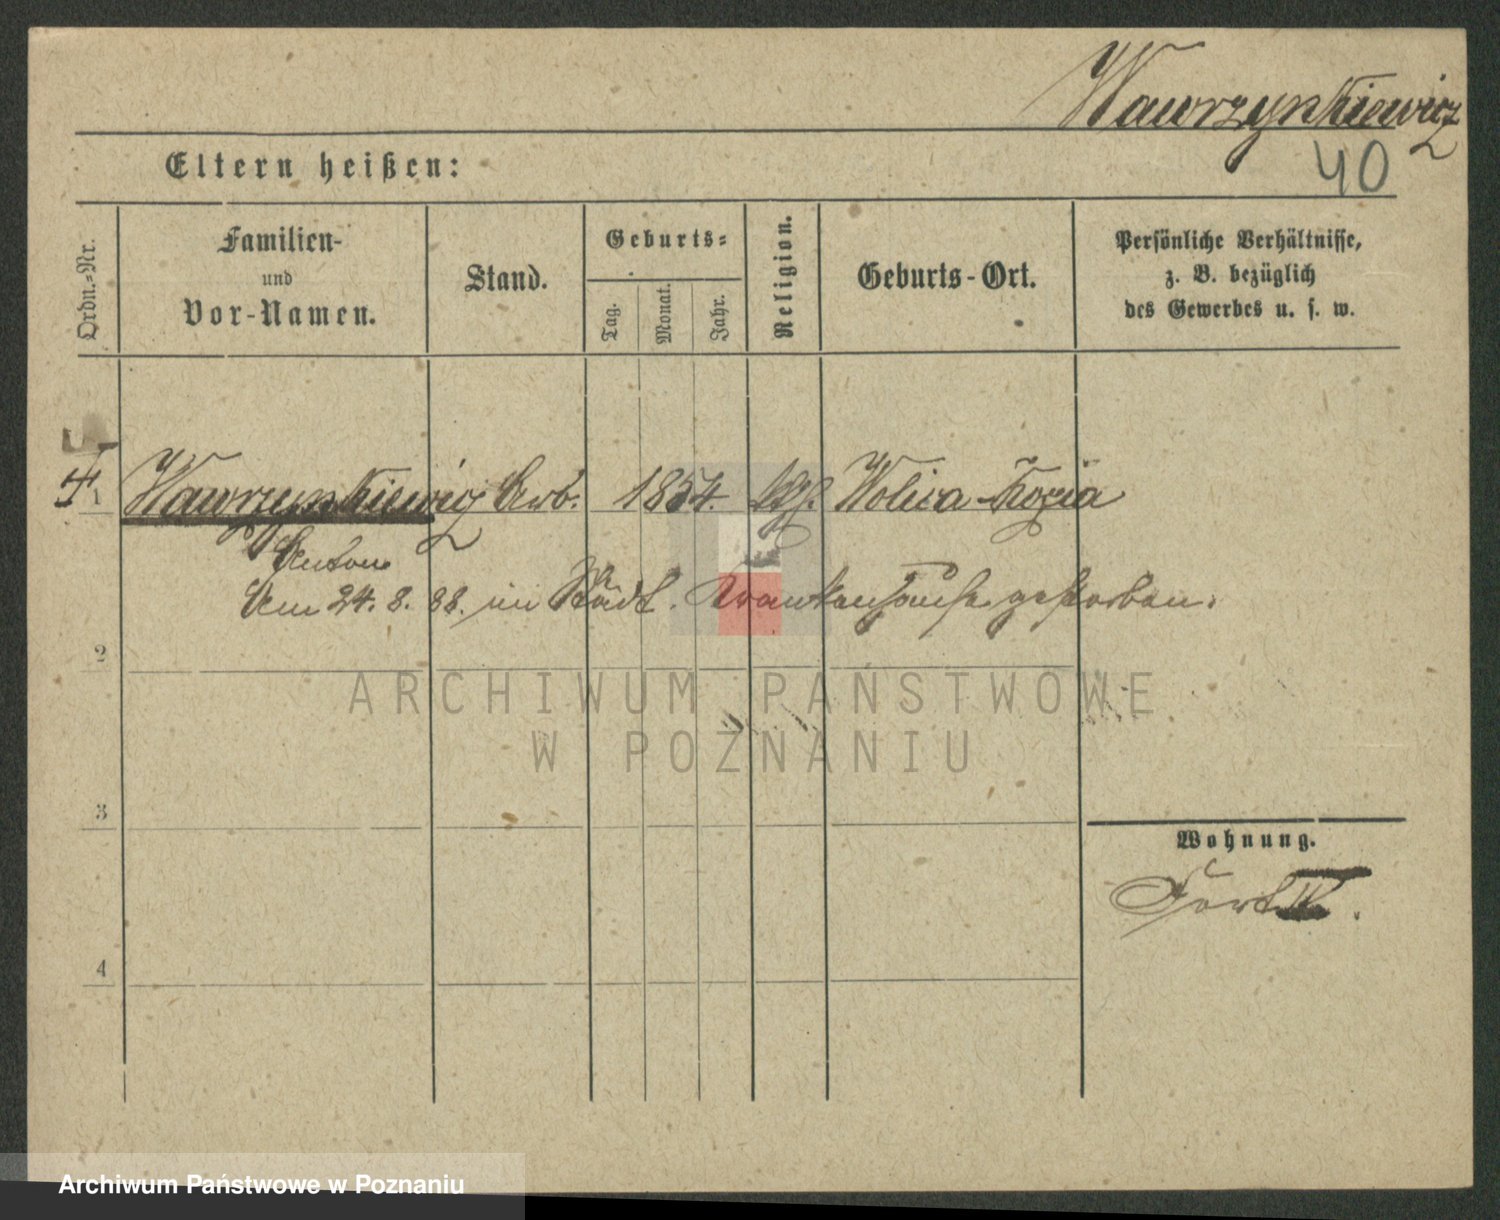 Wawrzynkiewicz
40
Eltern heißen:
Ordn.-Nr.
Familien-
und
Vor-Namen.
Stand.
Geburts-
Tag.
Monat.
Jahr.
Religion.
Geburts-Ort.
Persönliche Verhältnisse,
z. B. bezüglich
des Gewerbes u. s. w.
1 Wawrzynkiewicz Arb. 1854. Wolica Kozia
Anton
Am 24. 8. 88. im Städt. Krankenhause gestorben.
2
3
4
Wohnung.
Fort IV.
ARCHIWUM PAŃSTWOWE
W POZNANIU
Archiwum Państwowe w Poznaniu